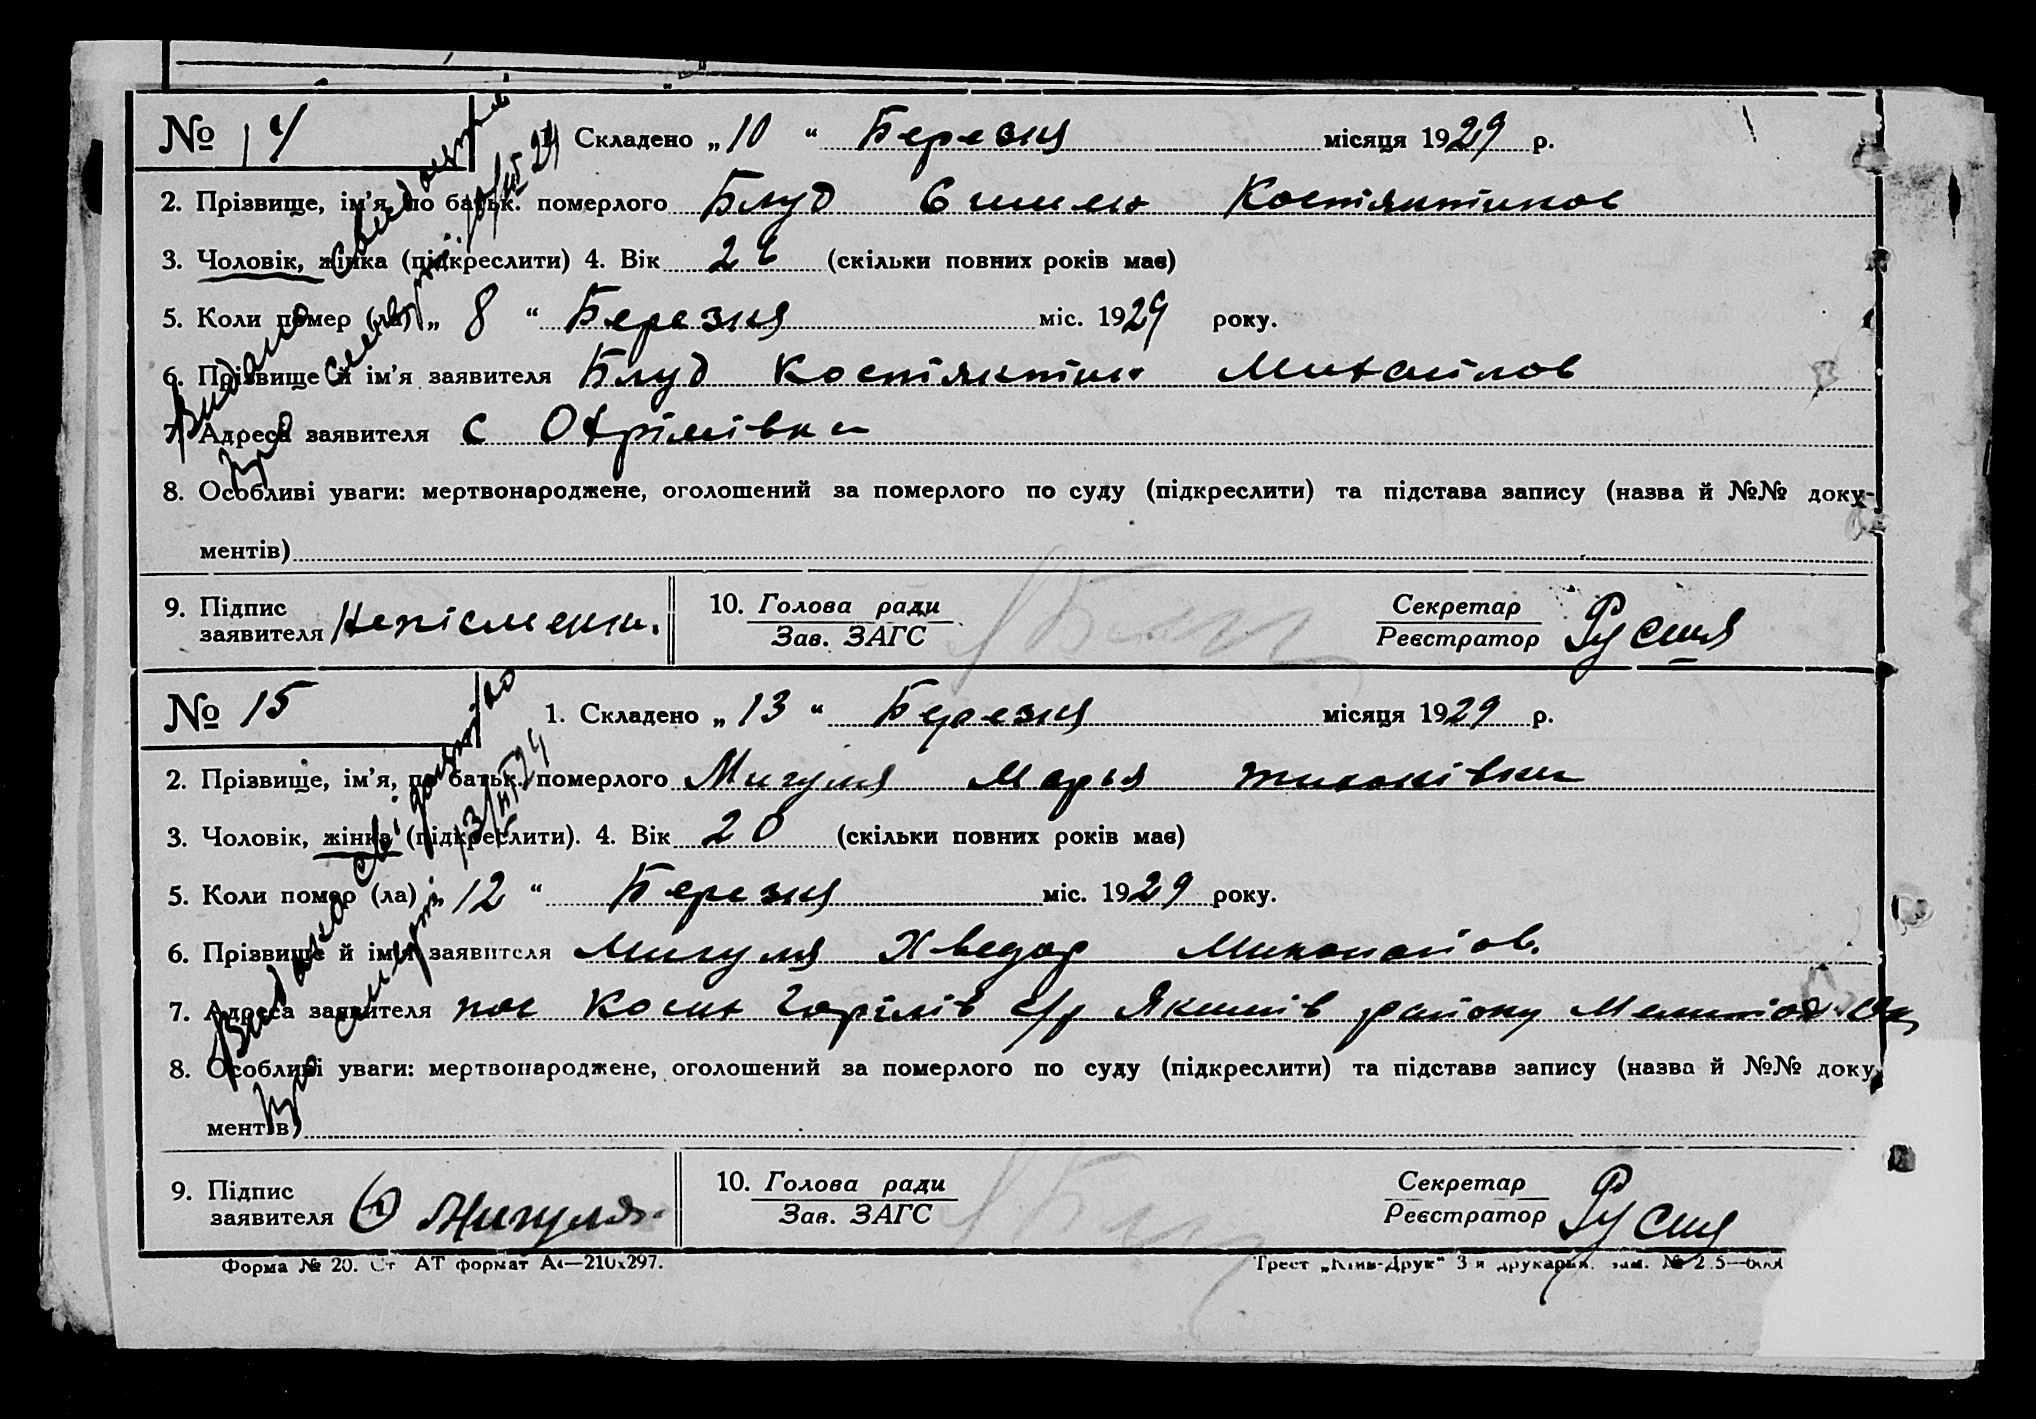 № 14 Складено „ 10 “ Березня місяця 1929 р.
2. Прізвище, ім’я, по батьк. померлого Блуд Костянтинов
3. Чоловік, жінка (підкреслити) 4. Вік (скільки повних років має)
5. Коли помер (ла) „ 8 “ Березня міс. 1929 року.
6. Прізвище й ім’я заявителя Блуд Костянтин Михайлов
7. Адреса заявителя с Охрімівка
8. Особливі уваги: мертвонароджене, оголошений за померлого по суду (підкреслити) та підстава запису (назва й №№ доку-
ментів)
9. Підпис заявителя Неписьменн. 10. Голова ради Зав. ЗАГС Секретар Реєстратор
Видано
про смерть 10/III 29
№ 15 1. Складено „ 13 “ Березня місяця 1929 р.
2. Прізвище, ім’я, по батьк. померлого Мигуля Марья
3. Чоловік, жінка (підкреслити). 4. Вік 20 (скільки повних років має)
5. Коли помер (ла) „ 12 “ Березня міс. 1929 року.
6. Прізвище й ім’я заявителя Мигуля Хведор Миколайов.
7. Адреса заявителя пос с/р Якимів району Мелитоп. Ок
8. Особливі уваги: мертвонароджене, оголошений за померлого по суду (підкреслити) та підстава запису (назва й №№ доку
ментів)
9. Підпис заявителя Ф Мигуля. 10. Голова ради Зав. ЗАГС Секретар Реєстратор
Видано свідоцтво
про смерть 13/III 29
Форма № 20. Ст АТ формат А4—210х297. Трест „Київ-Друк“ 3 я друкарня.